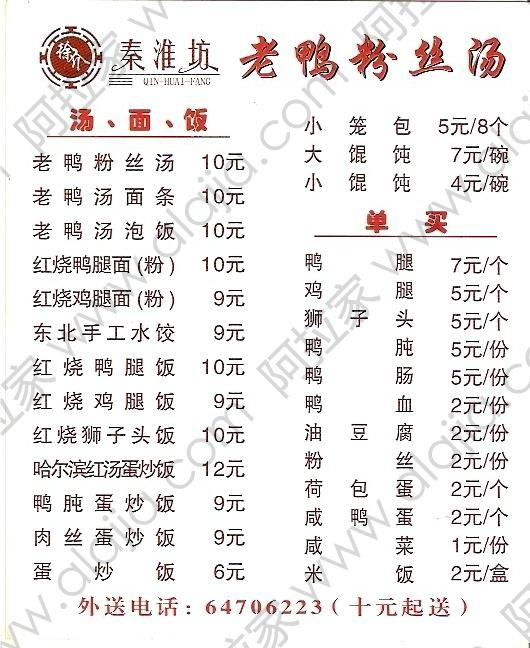 徐介
秦淮坊
QIN-HUAI-FANG
老鸭粉丝汤
汤、面、饭
老鸭粉丝汤 10元
老鸭汤面条 10元
老鸭汤泡饭 10元
红烧鸭腿面(粉) 10元
红烧鸡腿面(粉) 9元
东北手工水饺 9元
红烧鸭腿饭 10元
红烧鸡腿饭 9元
红烧狮子头饭 10元
哈尔滨红汤蛋炒饭 12元
鸭肫蛋炒饭 9元
肉丝蛋炒饭 9元
蛋炒饭 6元
小笼包 5元/8个
大馄饨 7元/碗
小馄饨 4元/碗
单买
鸭腿 7元/个
鸡腿 5元/个
狮子头 5元/个
鸭肫 5元/份
鸭肠 5元/份
鸭血 2元/份
油豆腐 2元/份
粉丝 2元/份
荷包蛋 2元/个
咸鸭蛋 2元/个
咸菜 1元/份
米饭 2元/盒
外送电话: 64706223(十元起送)
阿拉家 www.alajia.com